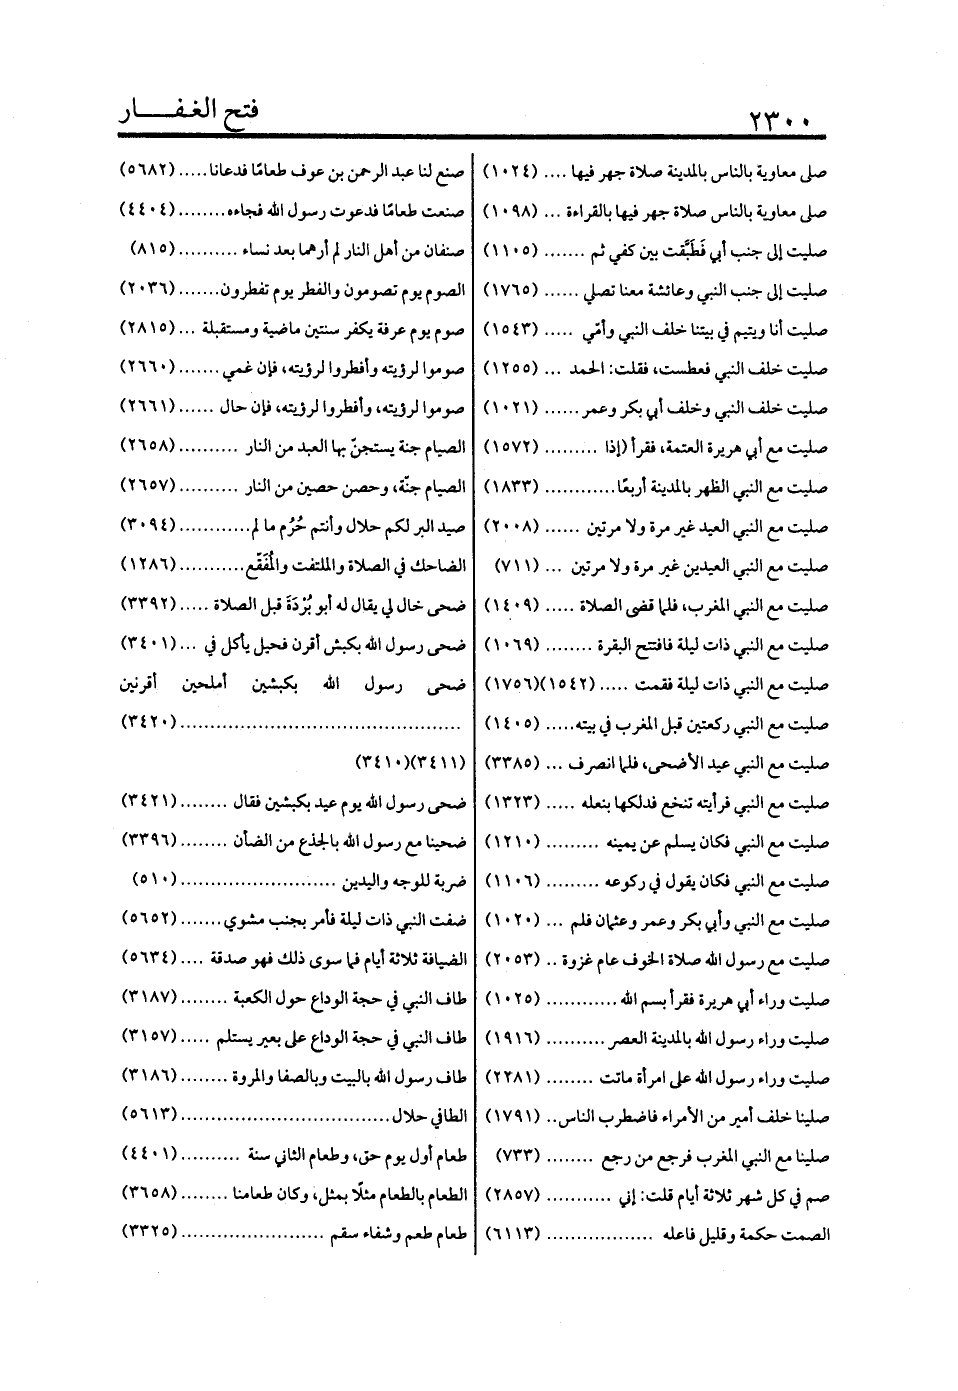 ٢٣٠٠
فتح الغفـــار
صلى معاوية بالناس بالمدينة صلاة جهر فيها .... (١٠٢٤)
صلى معاوية بالناس صلاة جهر فيها بالقراءة ... (١٠٩٨)
صليت إلى جنب أبي فَطَبَّقت بين كفي ثم ....... (١١٠٥)
صليت إلى جنب النبي وعائشة معنا تصلي ...... (١٧٦٥)
صليت أنا ويتيم في بيتنا خلف النبي وأمّي ..... (١٥٤٣)
صليت خلف النبي فعطست، فقلت: الحمد ... (١٢٥٥)
صليت خلف النبي وخلف أبي بكر وعمر ...... (١٠٢١)
صليت مع أبي هريرة العتمة، فقرأ (إذا ......... (١٥٧٢)
صليت مع النبي الظهر بالمدينة أربعًا............ (١٨٣٣)
صليت مع النبي العيد غير مرة ولا مرتين ...... (٢٠٠٨)
صليت مع النبي العيدين غير مرة ولا مرتين ... (٧١١)
صليت مع النبي المغرب، فلما قضى الصلاة ..... (١٤٠٩)
صليت مع النبي ذات ليلة فافتتح البقرة ........ (١٠٦٩)
صليت مع النبي ذات ليلة فقمت ..... (١٥٤٢)(١٧٥٦)
صليت مع النبي ركعتين قبل المغرب في بيته..... (١٤٠٥)
صليت مع النبي عيد الأضحى، فلما انصرف ... (٣٣٨٥)
صليت مع النبي فرأيته تنخع فدلكها بنعله ..... (١٣٢٣)
صليت مع النبي فكان يسلم عن يمينه ......... (١٢١٠)
صليت مع النبي فكان يقول في ركوعه ......... (١١٠٦)
صليت مع النبي وأبي بكر وعمر وعثمان فلم ... (١٠٢٠)
صليت مع رسول الله صلاة الخوف عام غزوة .. (٢٠٥٣)
صليت وراء أبي هريرة فقرأ بسم الله ............ (١٠٢٥)
صليت وراء رسول الله بالمدينة العصر.......... (١٩١٦)
صليت وراء رسول الله على امرأة ماتت ........ (٢٢٨١)
صلينا خلف أمير من الأمراء فاضطرب الناس.. (١٧٩١)
صلينا مع النبي المغرب فرجع من رجع ........ (٧٣٣)
صم في كل شهر ثلاثة أيام قلت: إني ........... (٢٨٥٧)
الصمت حكمة وقليل فاعله .................. (٦١١٣)
صنع لنا عبد الرحمن بن عوف طعامًا فدعانا..... (٥٦٨٢)
صنعت طعامًا فدعوت رسول الله فجاءه........ (٤٤٠٤)
صنفان من أهل النار لم أرهما بعد نساء .......... (٨١٥)
الصوم يوم تصومون والفطر يوم تفطرون....... (٢٠٣٦)
صوم يوم عرفة يكفر سنتين ماضية ومستقبلة ... (٢٨١٥)
صوموا لرؤيته وأفطروا لرؤيته، فإن غمي ....... (٢٦٦٠)
صوموا لرؤيته، وأفطروا لرؤيته، فإن حال ...... (٢٦٦١)
الصيام جنة يستجنّ بها العبد من النار .......... (٢٦٥٨)
الصيام جنّة، وحصن حصين من النار .......... (٢٦٥٧)
صيد البر لكم حلال وأنتم حُرُم ما لم............ (٣٠٩٤)
الضاحك في الصلاة والملتفت والمُفَقِّع........... (١٢٨٦)
ضحى خال لي يقال له أبو بُرْدَةَ قبل الصلاة ..... (٣٣٩٢)
ضحى رسول الله بكبش أقرن فحيل يأكل في ... (٣٤٠١)
ضحى رسول الله بكبشين أملحين أقرنين
............................................... (٣٤٢٠)
(٣٤١١)(٣٤١٠)
ضحى رسول الله يوم عيد بكبشين فقال ........ (٣٤٢١)
ضحينا مع رسول الله بالجذع من الضأن ........ (٣٣٩٦)
ضربة للوجه واليدين .......................... (٥١٠)
ضفت النبي ذات ليلة فأمر بجنب مشوي....... (٥٦٥٢)
الضيافة ثلاثة أيام فما سوى ذلك فهو صدقة .... (٥٦٣٤)
طاف النبي في حجة الوداع حول الكعبة ........ (٣١٨٧)
طاف النبي في حجة الوداع على بعير يستلم ..... (٣١٥٧)
طاف رسول الله بالبيت وبالصفا والمروة ........ (٣١٨٦)
الطافي حلال................................... (٥٦١٣)
طعام أول يوم حق، وطعام الثاني سنة .......... (٤٤٠١)
الطعام بالطعام مثلًا بمثل، وكان طعامنا ........ (٣٦٥٨)
طعام طعم وشفاء سقم ........................ (٣٣٢٥)